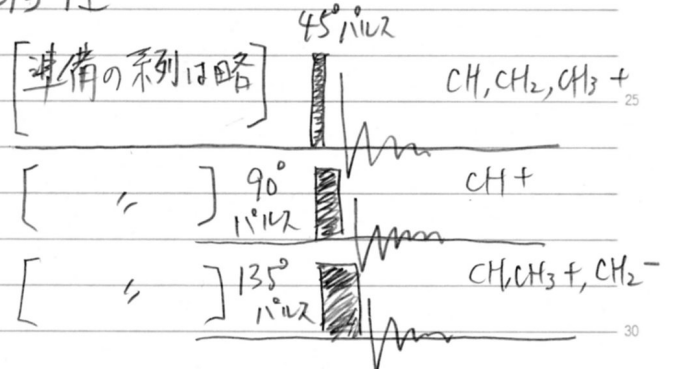 45°パルス
[準備の系列は略] CH, CH₂, CH₃ +
25
[ 〃 ] 90° パルス CH +
[ 〃 ] 135° パルス CH, CH₃ +, CH₂ -
30